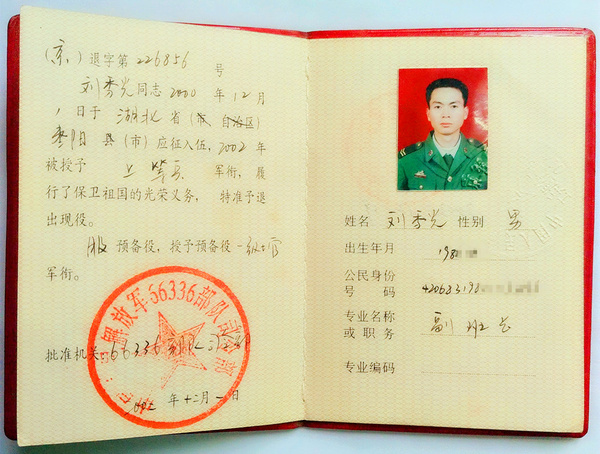 (京)退字第 226856 号
刘秀光同志2000年12月
1日于湖北省(市、自治区)
枣阳县(市)应征入伍,2002年
被授予上等兵军衔,履
行了保卫祖国的光荣义务,特准予退
出现役。
服预备役,授予预备役一级士官
军衔。
批准机关:66336部队
年十二月一日
放军66336部队
姓名 刘秀光 性别 男
出生年月 198
公民身份
号码 420683198
专业名称
或职务 副班长
专业编码